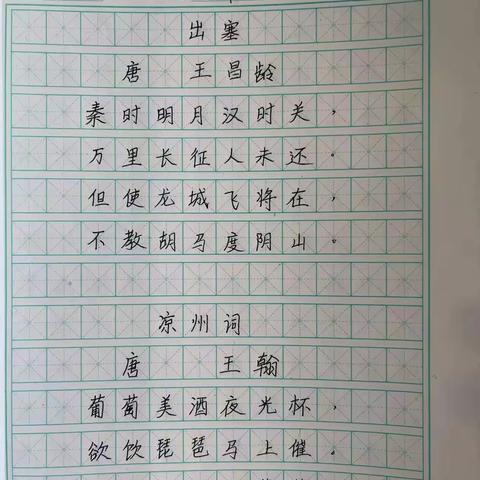 出塞
唐 王昌龄
秦时明月汉时关，
万里长征人未还。
但使龙城飞将在，
不教胡马度阴山。
凉州词
唐 王翰
葡萄美酒夜光杯，
欲饮琵琶马上催。